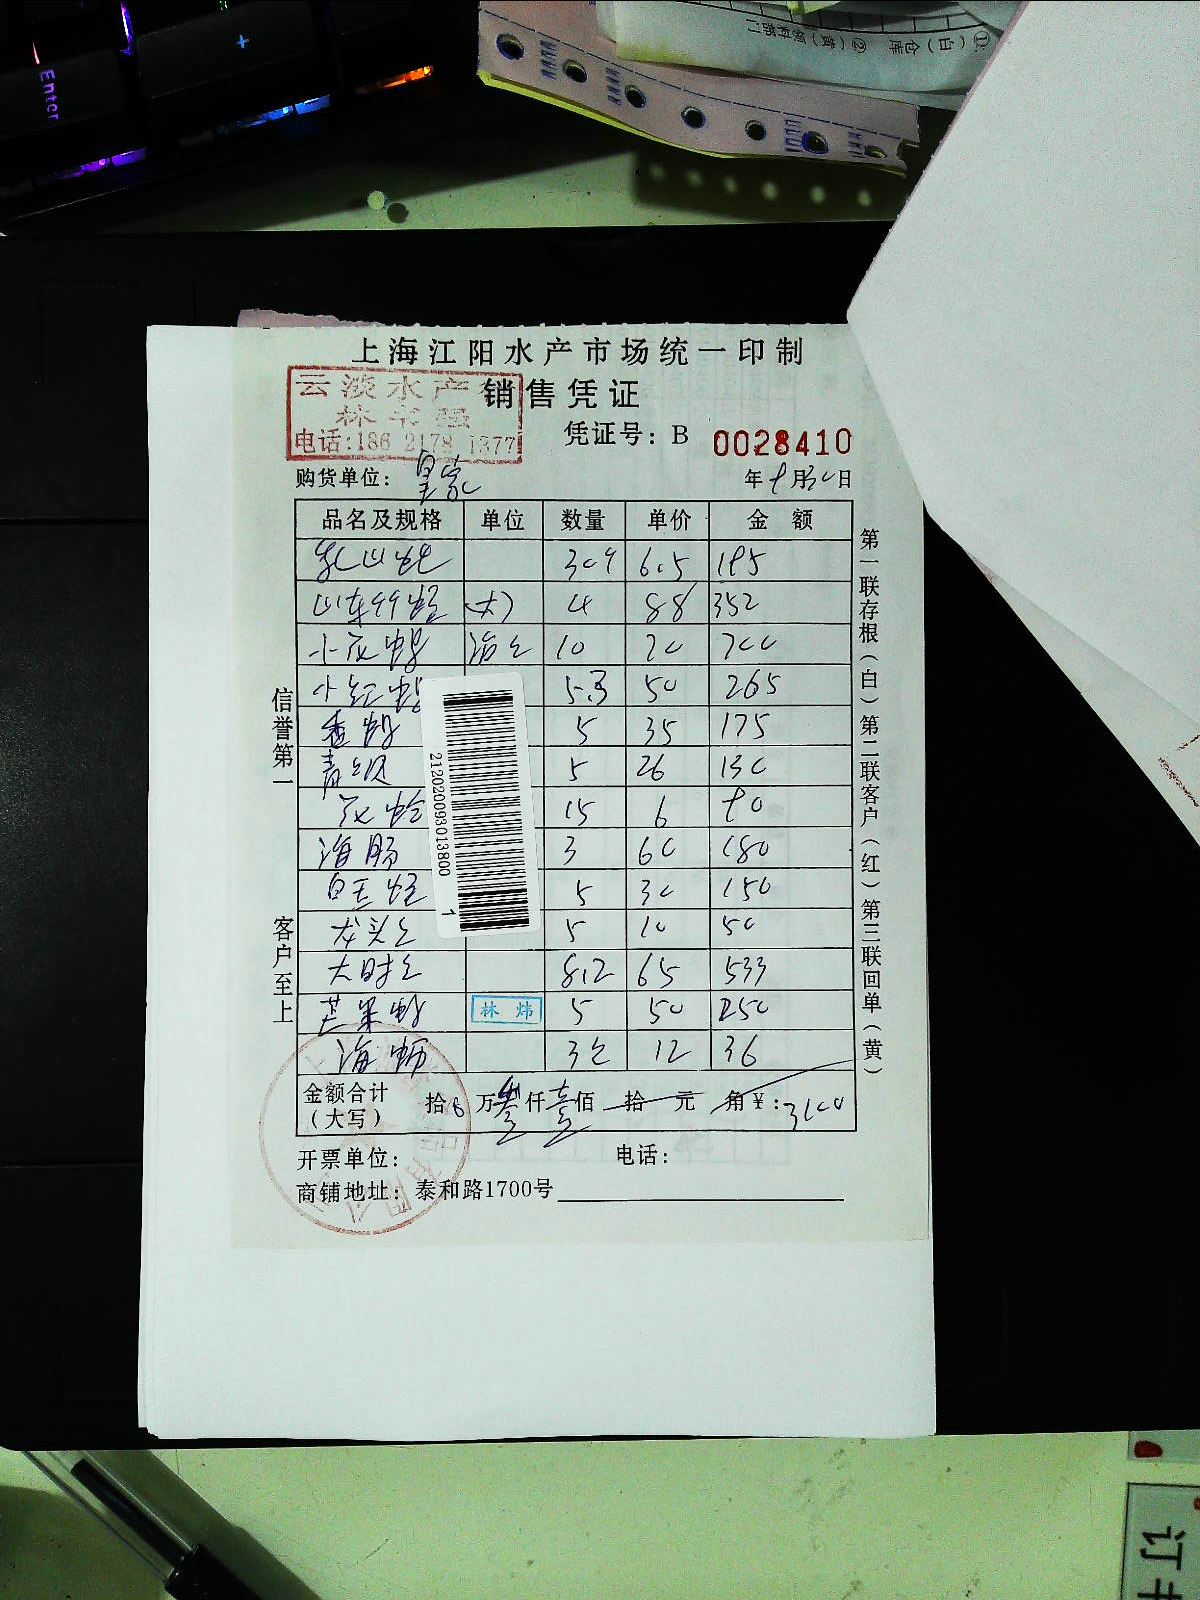 Enter
+
①(白)仓库 ②(黄)领料部门
上海江阳水产市场统一印制
云淡水产
销售凭证
电话:186 2178 1377
凭证号: B 0028410
购货单位: 皇家 年9月30日
品名及规格 单位 数量 单价 金额
乳山蚝 309 6.5 195
山东99蛏 大 4 88 352
小灰蛤 10 70 700
小红蛤 5.3 50 265
香螺 5 35 175
青 5 26 130
花蛤 15 6 90
海肠 3 60 180
白玉蛏 5 30 150
龙头 5 10 50
大 8.2 65 533
芒果螺 林炜 5 50 250
海蛎 3 12 36
金额合计
(大写) 拾 万叁仟壹佰 拾 元 角 ¥: 3100
开票单位: 电话:
商铺地址: 泰和路1700号
信誉第一 客户至上
第一联存根(白)第二联客户(红)第三联回单(黄)
21202009301380​0 1
订书